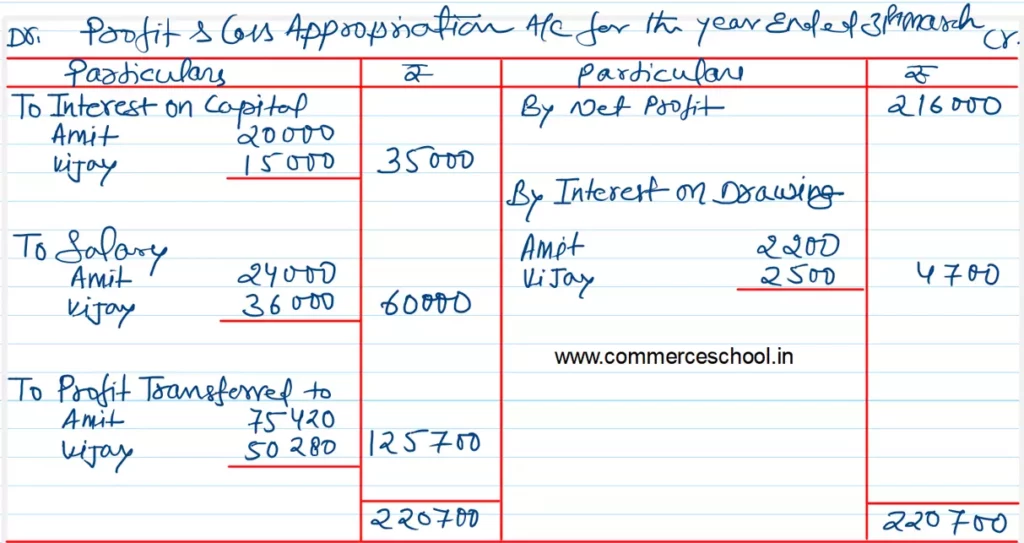 Dr. Profit & Loss Appropriation A/c for the year Ended 31st march Cr.
Particulars ₹ Particulars ₹
To Interest on Capital By Net Profit 216000
Amit 20000
Vijay 15000 35000
By Interest on Drawing
To Salary Amit 2200
Amit 24000 Vijay 2500 4700
Vijay 36000 60000
www.commerceschool.in
To Profit Transferred to
Amit 75420
Vijay 50280 125700
220700 220700